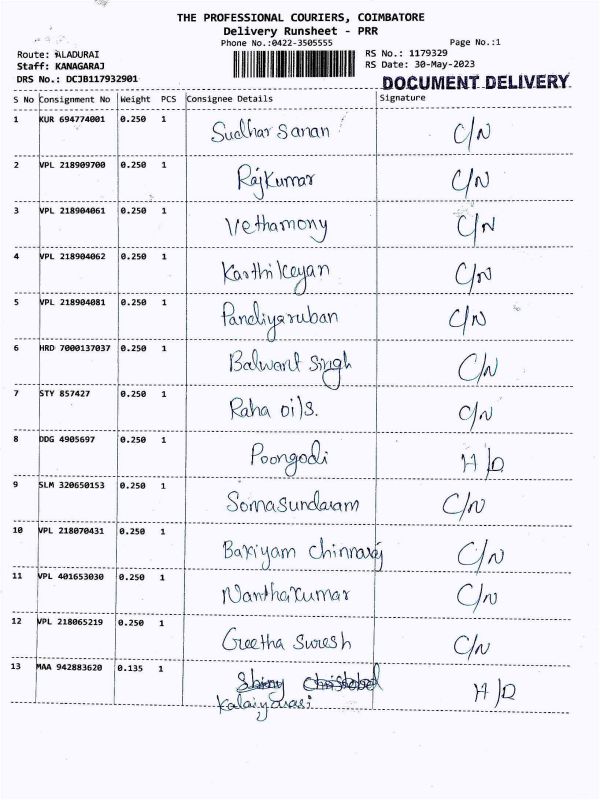 THE PROFESSIONAL COURIERS, COIMBATORE
Delivery Runsheet - PRR
Phone No.:0422-3505555 Page No.:1
Route: ALADURAI RS No.: 1179329
Staff: KANAGARAJ RS Date: 30-May-2023
DRS No.: DCJB117932901 DOCUMENT DELIVERY
S No Consignment No Weight PCS Consignee Details Signature
1 KUR 694774001 0.250 1 Sudharsanan C/N
2 VPL 218909700 0.250 1 Rajkumar C/N
3 VPL 218904061 0.250 1 Vethamony C/N
4 VPL 218904062 0.250 1 Karthikeyan C/N
5 VPL 218904081 0.250 1 Pandiyaruban C/N
6 HRD 7000137037 0.250 1 Balwant Singh C/N
7 STY 857427 0.250 1 Raha oils. C/N
8 DDG 4905697 0.250 1 Poongodi H/D
9 SLM 320650153 0.250 1 Somasundaram C/N
10 VPL 218070431 0.250 1 Bakiyam Chinnaraj C/N
11 VPL 401653030 0.250 1 Nanthakumar C/N
12 VPL 218065219 0.250 1 Geetha Suresh C/N
13 MAA 942883620 0.135 1 H/D
Kalaiyarasi